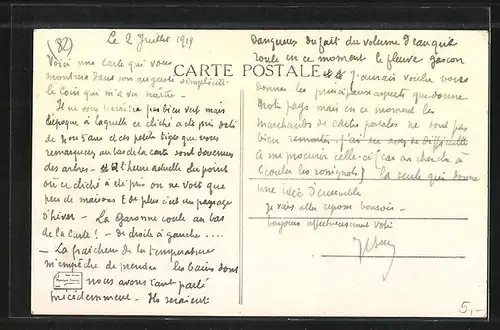 (82)
Le 2 Juillet 1919
Voici une carte qui vous
montrera dans son auguste simplicité
le coin qui m'a vu naître -
Il ne vous paraîtra pas bien vert mais
l'époque à laquelle ce cliché a été pris date
de 20 ou 5 ans et ces petites tiges que vous
remarquez au bas de la carte sont devenues
des arbres - à l'heure actuelle du point
où ce cliché a été pris on ne voit que
peu de maisons & de plus c'est un paysage
d'hiver - La Garonne coule au bas
de la carte ! - de droite à gauche ....
- La fraîcheur de la température
m'empêche de prendre les bains dont
nous avons tant parlé
précédemment - Ils seraient
CARTE POSTALE
dangereux du fait du volume d'eau que
roule en ce moment le fleuve gascon
J'aurais voulu vous
donner les principaux aspects que donne
notre pays mais en ce moment les
marchands de cartes postales ne sont pas
bien remontés j'ai eu assez de difficultés
à me procurer celle-ci (car on cherche à
couler les rossignols) la seule qui donne
une idée d'ensemble
Je vais aller reposer bonsoir -
toujours affectueusement votre
5,-